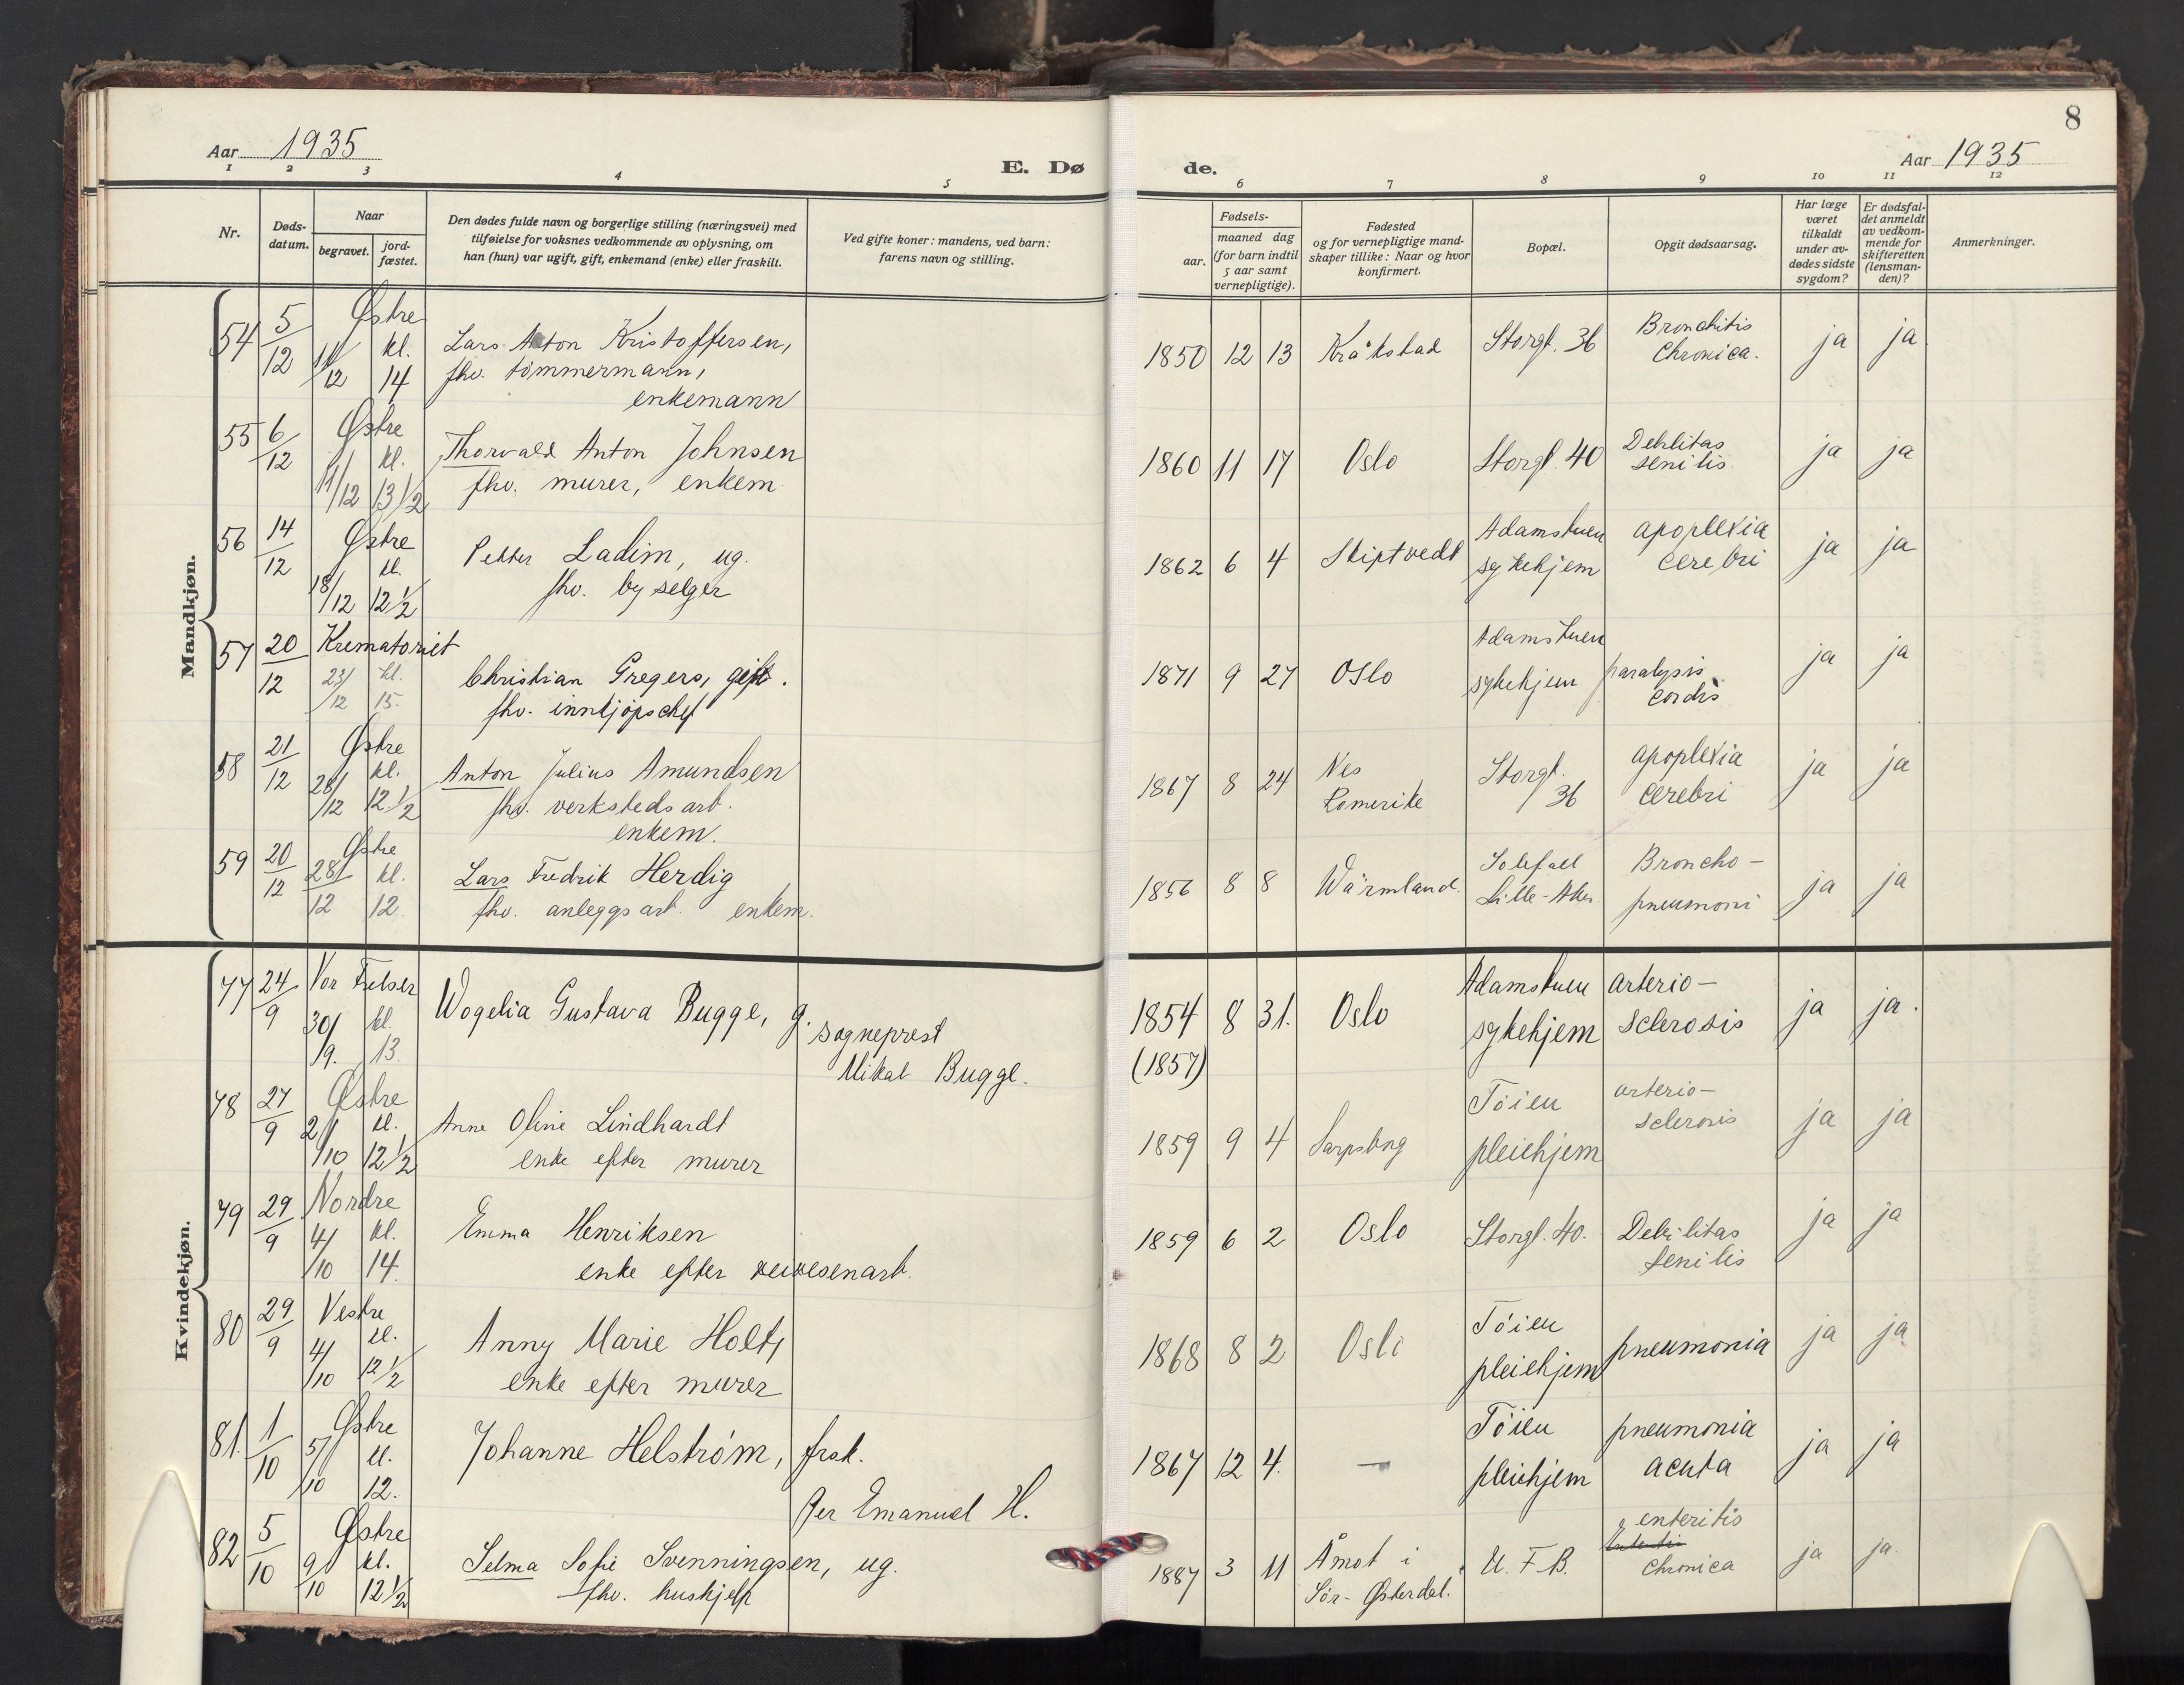 8
Aar 1935
E. Dø
de.
Aar 1935
1 2 3 4 5 6 7 8 9 10 11 12
Nr.
Døds-
datum.
Naar
begravet.
jord-
fæstet.
Den dødes fulde navn og borgerlige stilling (næringsvei) med
tilføielse for voksnes vedkommende av oplysning, om
han (hun) var ugift, gift, enkemand (enke) eller fraskilt.
Ved gifte koner: mandens, ved barn:
farens navn og stilling.
Fødsels-
aar.
maaned dag
(for barn indtil
5 aar samt
vernepligtige).
Fødested
og for vernepligtige mand-
skaper tillike: Naar og hvor
konfirmert.
Bopæl.
Opgit dødsaarsag.
Har læge
været
tilkaldt
under av-
dødes sidste
sygdom?
Er dødsfal-
det anmeldt
av vedkom-
mende for
skifteretten
(lensman-
den)?
Anmerkninger.
Mandkjøn.
54 5/12 Østre 11/12 kl. 14
Lars Anton Kristoffersen,
fhv. tømmermann,
enkemann
1850 12 13 Kråkstad Storgt. 36 Bronchitis
Chronica. ja ja
55 6/12 Østre 11/12 kl. 13 1/2
Thorvald Anton Johnsen
fhv. murer, enkem.
1860 11 17 Oslo Storgt. 40 Debilitas
senilis. ja ja
56 14/12 Østre 18/12 kl. 12 1/2
Petter Ladim, ug.
fhv. byselger
1862 6 4 Skiptvedt Adamstuen
sykehjem apoplexia
cerebri ja ja
57 20/12 Krematoriet 23/12 kl. 15.
Christian Gregers, gift.
fhv. innkjøpschef
1871 9 27 Oslo Adamstuen
sykehjem paralysis
cordis ja ja
58 21/12 Østre 28/12 kl. 12 1/2
Anton Julius Amundsen
fhv. verkstedsarb.
enkem.
1867 8 24 Nes
Romerike Storgt.
36 apoplexia
cerebri ja ja
59 20/12 Østre 28/12 kl. 12.
Lars Fredrik Herdig
fhv. anleggsarb. enkem.
1856 8 8 Wärmland. Solefall
Lille-Aker. Broncho-
pneumoni ja ja
Kvindekjøn.
77 24/9 Vor Frelser 30/9. kl. 13.
Wogelia Gustava Bugge, g.
sogneprest
Mikal Bugge.
1854 8 31. Oslo Adamstuen
sykehjem arterio-
sclerosis ja ja.
(1857)
78 27/9 Østre 2/10 kl. 12 1/2
Anne Oline Lindhardt
enke efter murer
1859 9 4 Sarpsborg Töien
pleiehjem arterio-
sclerosis ja ja
79 29/9 Nordre 4/10 kl. 14.
Emma Henriksen
enke efter veivesenarb.
1859 6 2 Oslo Storgt. 40. Debilitas
senilis ja ja
80 29/9 Vestre 4/10 kl. 12 1/2
Anny Marie Holt,
enke efter murer
1868 8 2 Oslo Töien
pleiehjem pneumonia ja ja
81. 1/10 Østre 5/10 kl. 12.
Johanne Helström, frsk.
Per Emanuel H.
1867 12 4. — Töien
pleiehjem pneumonia
acuta ja ja
82 5/10 Østre 9/10 kl. 12 1/2
Selma Sofie Svenningsen, ug.
fhv. huskjelp
1887 3 11 Åmot i
Sör-Østerdal. U. F. B. enteritis
chronica ja ja.